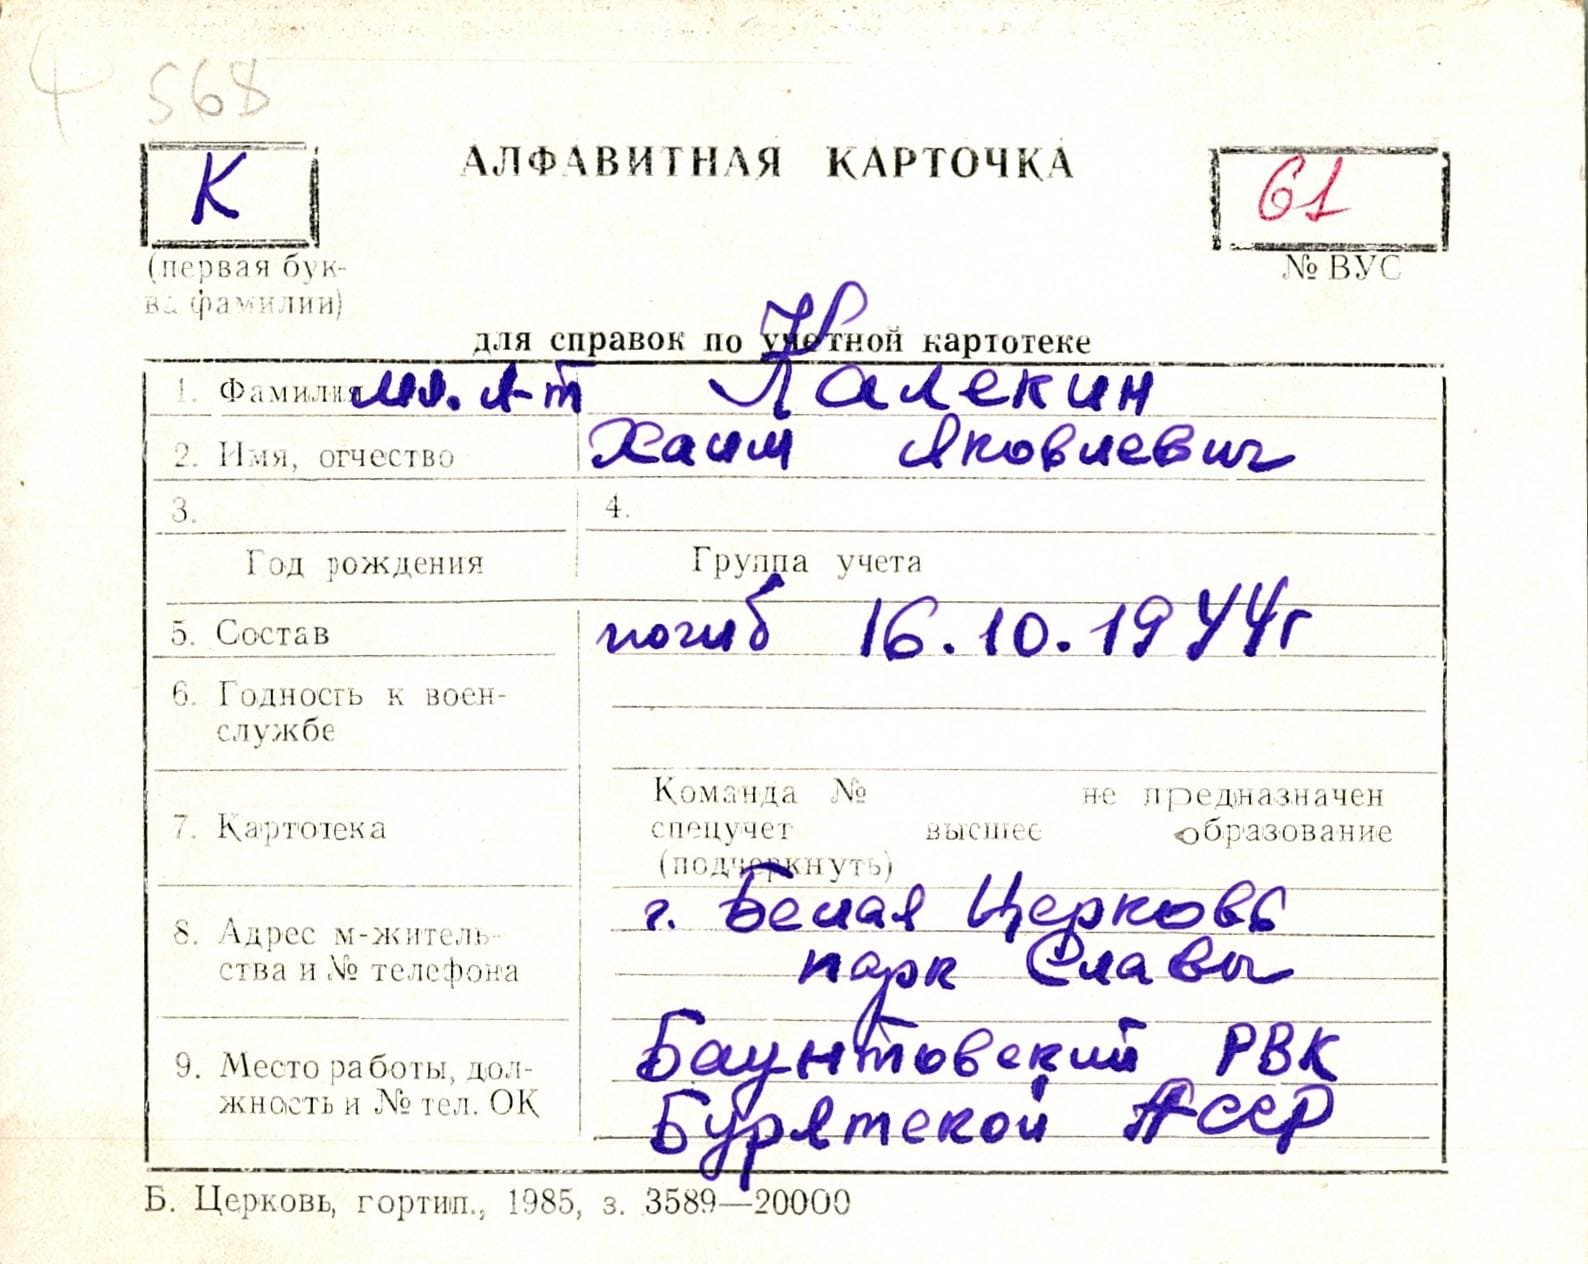 568
К АЛФАВИТНАЯ КАРТОЧКА 61
(первая бук-
ва фамилии)
№ ВУС
для справок по учетной картотеке
1. Фамилия мл. л-т Калекин
2. Имя, отчество Хаим Яковлевич
3. 4.
Год рождения Группа учета
5. Состав погиб 16.10.1944г
6. Годность к воен-
службе
Команда № не предназначен
7. Картотека спецучет высшее образование
(подчеркнуть)
8. Адрес м-житель-
ства и № телефона
г. Белая Церковь
парк Славы
9. Место работы, дол-
жность и № тел. ОК
Баунтовский РВК
Бурятской АССР
Б. Церковь, гортип., 1985, з. 3589—20000